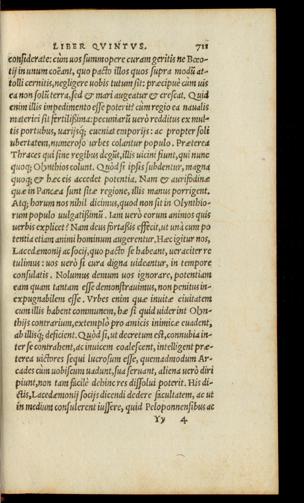 LIBER QVINTVS. 711
considerate: cùm uos summopere curam geritis ne Bœo-
tij in unum coëant, quo pacto illos quos supra modũ at-
tolli cernitis, negligere uobis tutum sit: præcipuè cùm uis
ea non solũ terra, sed & mari augeatur & crescat. Quid
enim illis impedimento esse poterit? cùm regio ea naualis
materiei sit fertilissima: pecuniarũ uerò redditus ex mul-
tis portubus, uarijsq; eueniat emporijs: ac propter soli
ubertatem, numeroso urbes colantur populo. Præterea
Thraces qui sine regibus degũt, illis uicini sunt, qui nunc
quoq; Olynthios colunt. Quòd si ipsis subdentur, magna
quoq; & hæc eis accedet potentia. Nam & aurifodinæ
quæ in Pancæa sunt sitæ regione, illis manus porrigent.
Atq; horum nos nihil dicimus, quod non sit in Olynthio-
rum populo uulgatissimũ. Iam uerò eorum animos quis
uerbis explicet? Nam deus fortassis effecit, ut unà cum po
tentia etiam animi hominum augerentur. Hæc igitur nos,
Lacedæmonij ac socij, quo pacto se habeant, ueraciter re
tulimus: uos uerò si cura digna uideantur, in tempore
consulatis. Nolumus demum uos ignorare, potentiam
eam quam tantam esse demonstrauimus, non penitus in-
expugnabilem esse. Vrbes enim quæ inuitæ ciuitatem
cum illis habent communem, hæ si quid uiderint Olyn-
thijs contrarium, extemplò pro amicis inimicæ euadent,
ab illisq; deficient. Quòd si, ut decretum est, connubia in-
ter se contrahent, ac inuicem coalescent, intelligent præ-
terea uictores sequi lucrosum esse, quemadmodum Ar-
cades cùm uobiscum uadunt, sua seruant, aliena uerò diri
piunt, non tam facilè dehinc res dissolui poterit. His di-
ctis, Lacedæmonij socijs dicendi dedere facultatem, ac ut
in medium consulerent iussere, quid Peloponnensibus ac
Yy 4